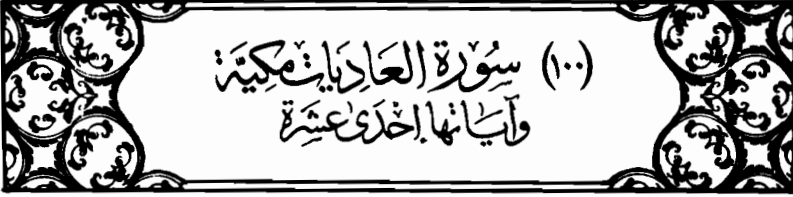 (١٠٠) سُورَةِ العَادِيَاتِ مَكِيَّة
وَآيَاتُهَا إِحْدَىٰ عَشَرَة